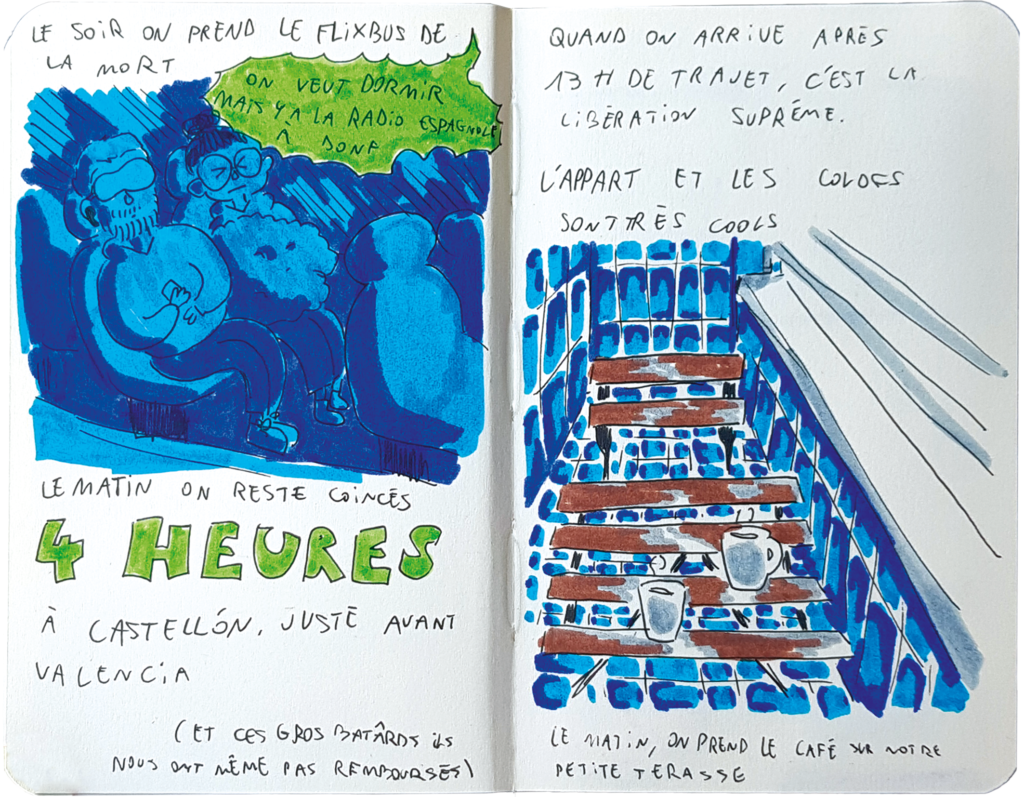 LE SOIR ON PREND LE FLIXBUS DE
LA MORT
ON VEUT DORMIR
MAIS Y'A LA RADIO ESPAGNOLE
À DONF
LE MATIN ON RESTE COINCÉS
4 HEURES
À CASTELLÓN, JUSTE AVANT
VALENCIA
(ET CES GROS BATÂRDS ILS
NOUS ONT MÊME PAS REMBOURSÉS)
QUAND ON ARRIVE APRÈS
13 H DE TRAJET, C'EST LA
LIBÉRATION SUPRÉME.
L'APPART ET LES COLOCS
SONT TRÈS COOLS
LE MATIN, ON PREND LE CAFÉ SUR NOTRE
PETITE TERASSE